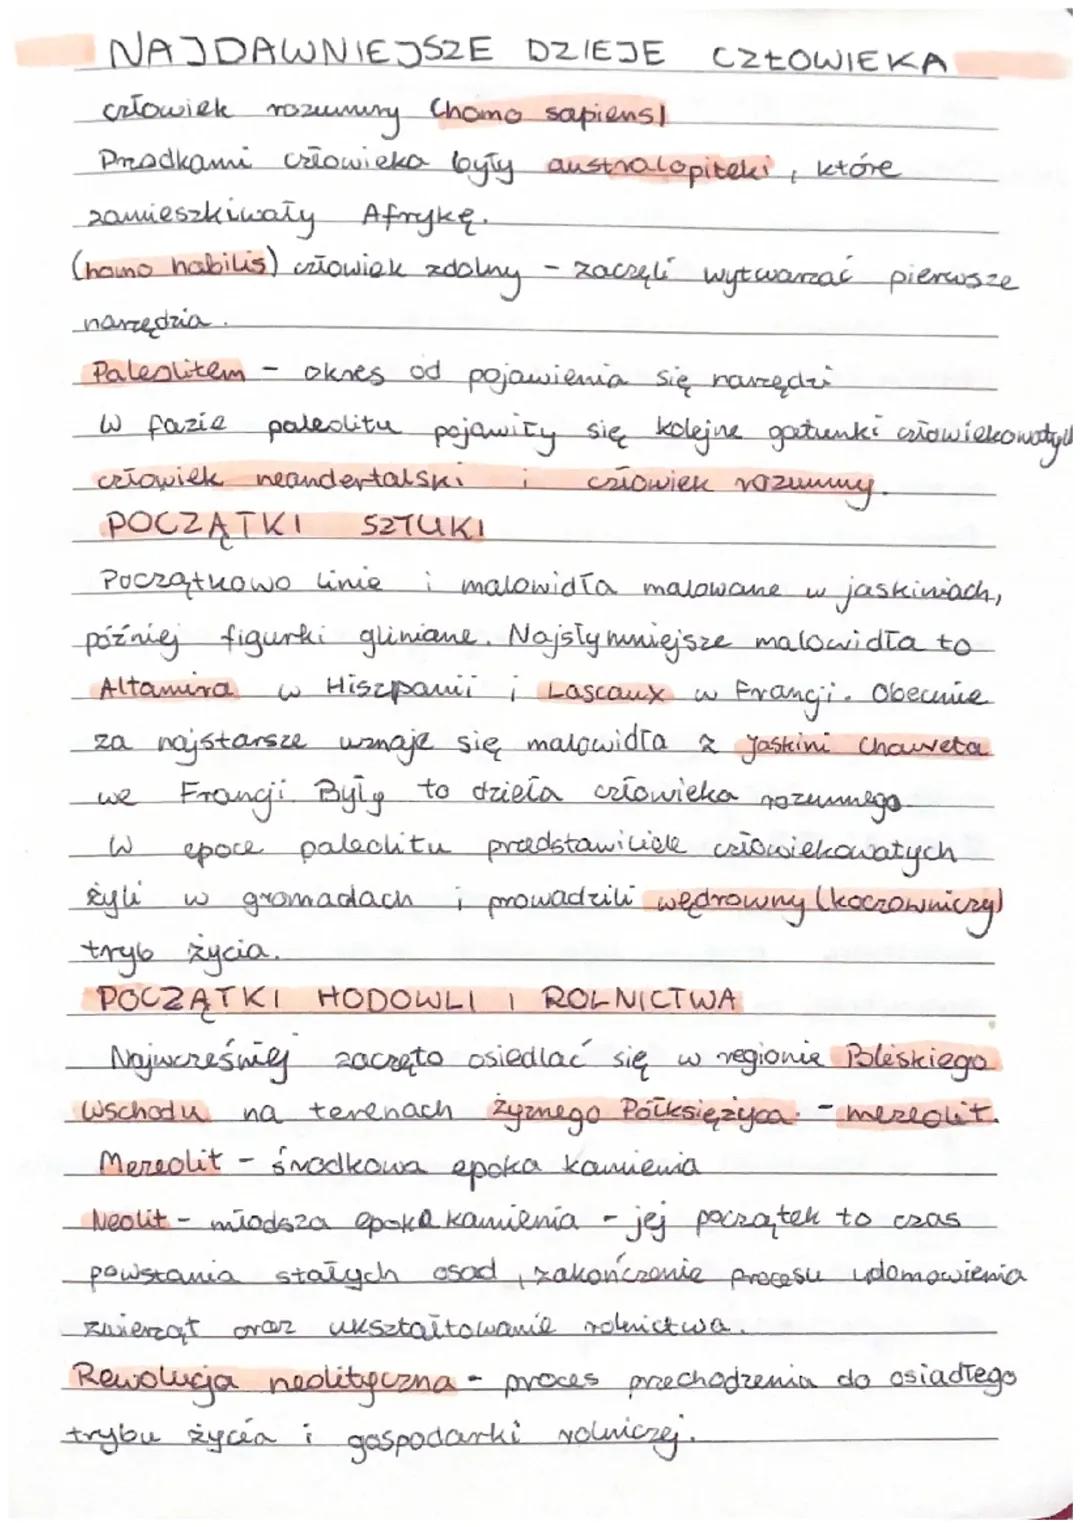 NAJDAWNIEJSZE DZIEJE CZŁOWIEKA
człowiek rozumny (homo sapiens)
Przodkami człowieka były australopiteki, które
zamieszkiwały Afrykę.
(homo habilis) człowiek zdolny - zaczęli wytwarzać pierwsze
narzędzia.
Paleolitem - okres od pojawienia się narzędzi
W fazie paleolitu pojawiły się kolejne gatunki człowiekowatych
człowiek neandertalski i człowiek rozumny.
POCZĄTKI SZTUKI
Początkowo linie i malowidła malowane w jaskiniach,
później figurki gliniane. Najsłynniejsze malowidła to
Altamira w Hiszpanii i Lascaux w Francji. Obecnie
za najstarsze uznaje się malowidła z Jaskini Chauveta
we Francji. Były to dzieła człowieka rozumnego
W epoce paleolitu przedstawiciele człowiekowatych
żyli w gromadach i prowadzili wędrowny (koczowniczy)
tryb życia.
POCZĄTKI HODOWLI I ROLNICTWA
Najwcześniej zaczęto osiedlać się w regionie Bliskiego
Wschodu na terenach żyznego Półksiężyca. - mezeolit.
Mezeolit - środkowa epoka kamienia
Neolit - młodsza epoka kamienia - jej początek to czas
powstania stałych osad, zakończenie procesu udomowienia
zwierząt oraz ukształtowanie rolnictwa.
Rewolucja neolityczna - proces przechodzenia do osiadłego
trybu życia i gospodarki rolniczej.